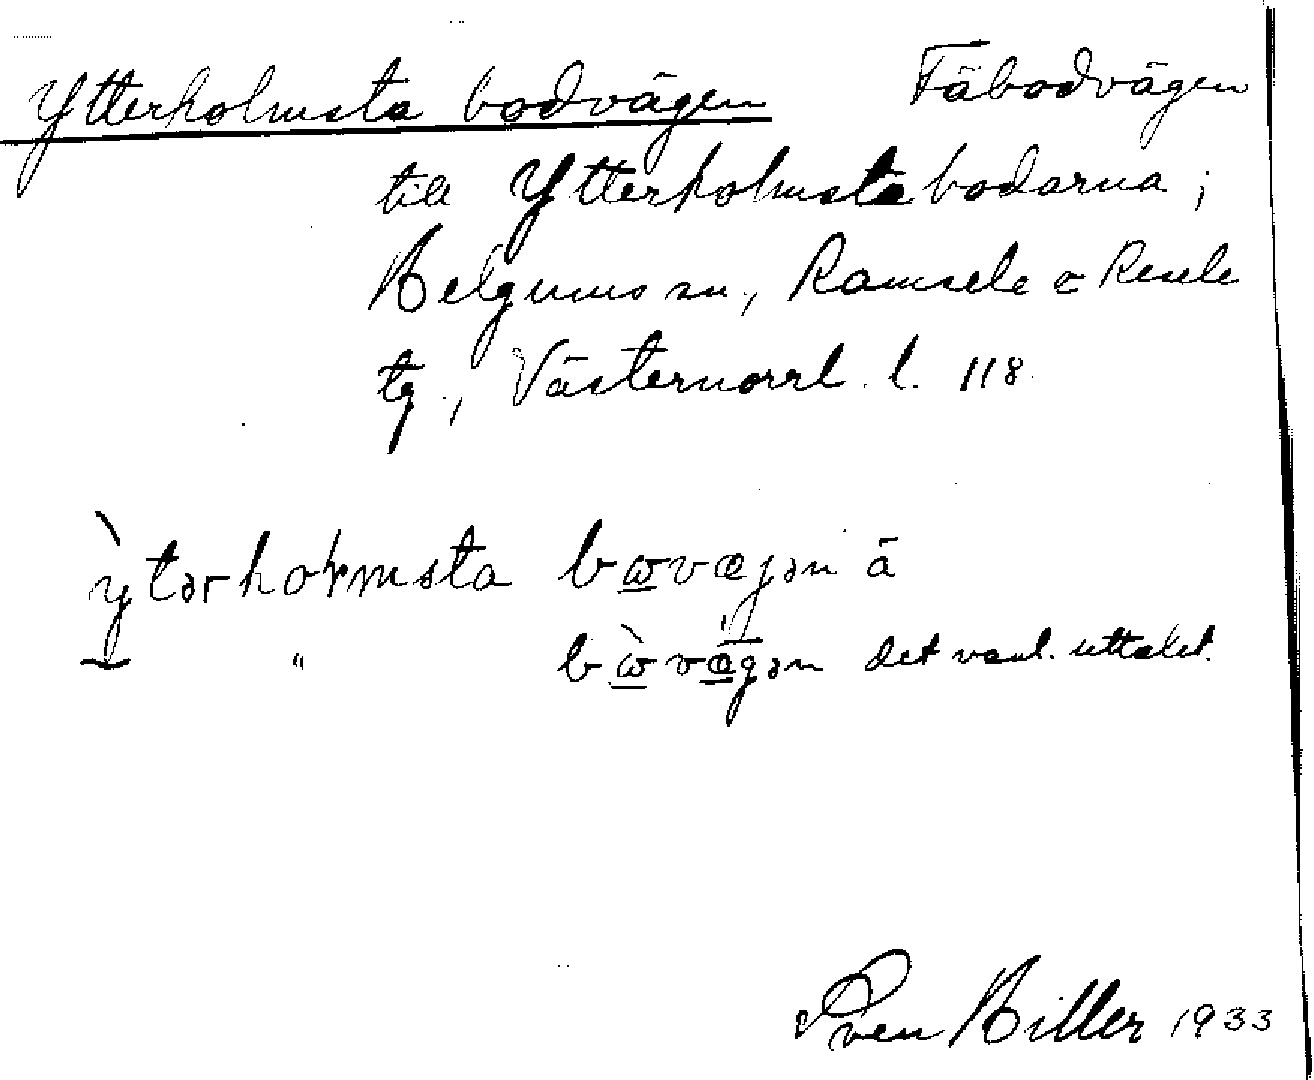 Ytterholmsta bodvägen Fäbodvägen
till Ytterholmstabodarna;
Helgums sn, Ramsele o Resele
tg, Västernorrl. l. 118
ỳtərhoɫmsta bωvægən ä
" bὼvægən det vanl. uttalet.
Sven Hiller 1933